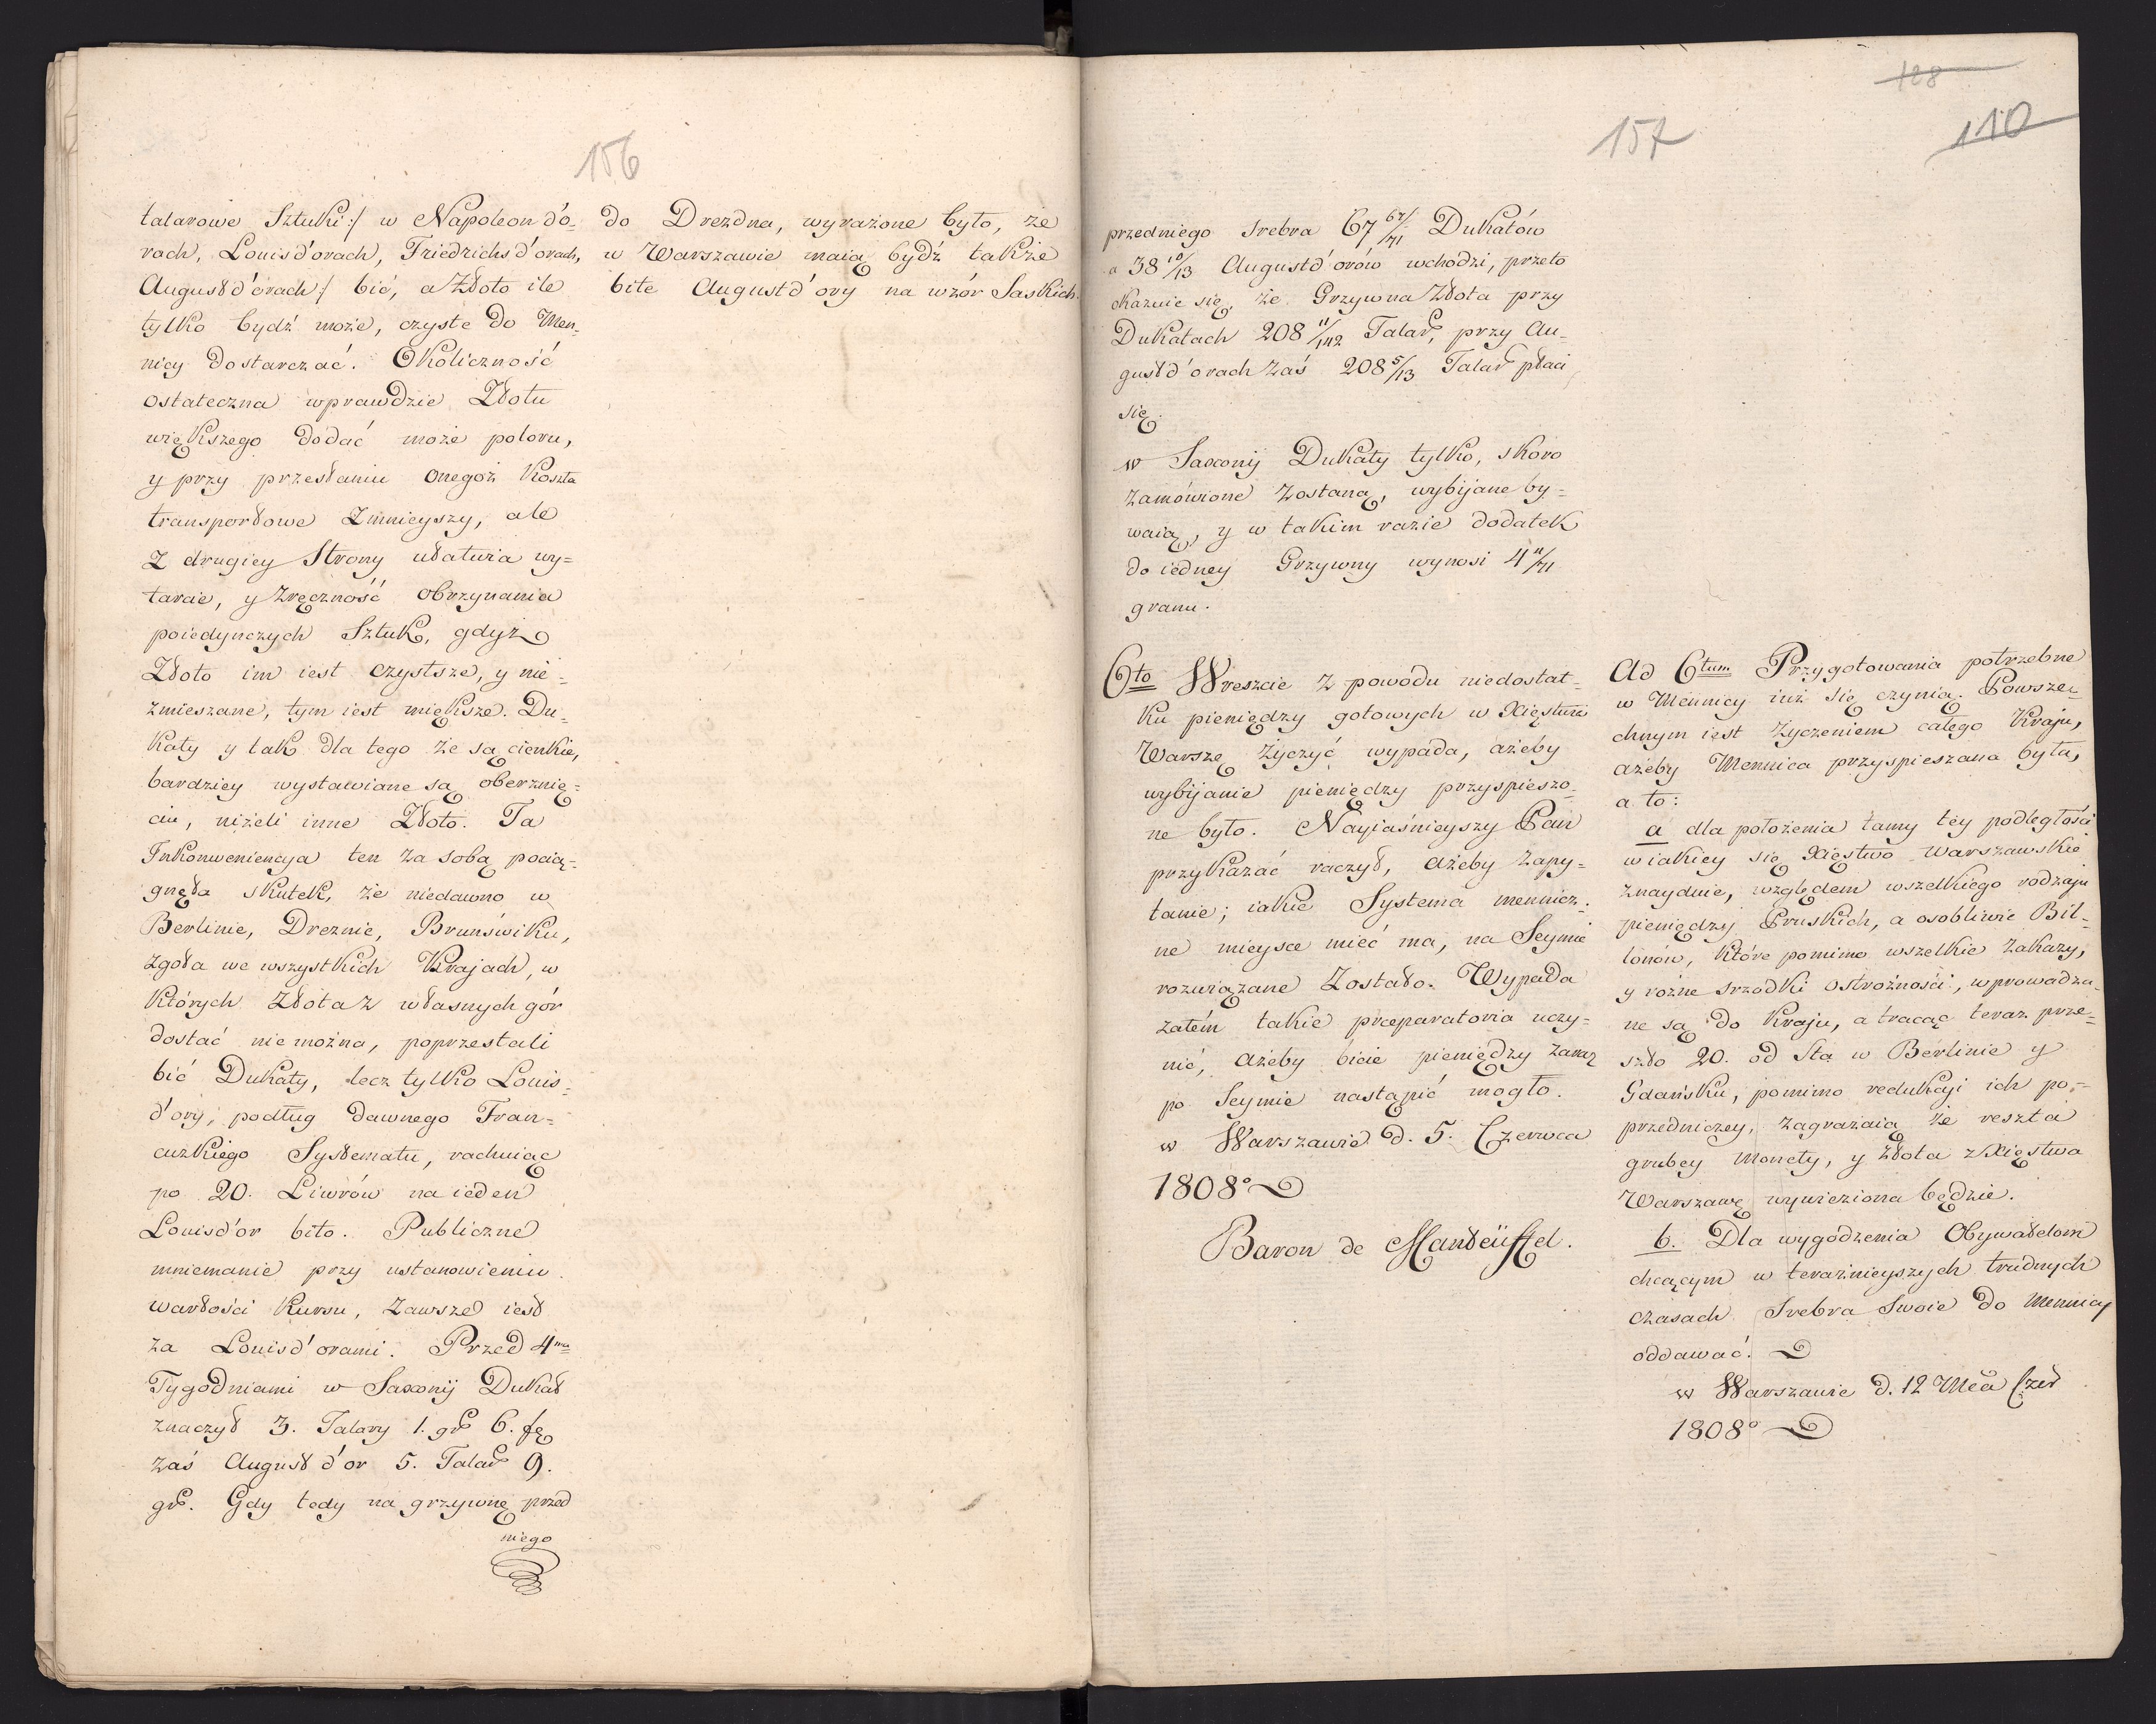 156
talarowe Sztuki:/ w Napoleon d'o-
rach, Louisd'orach, Friedrichs d'orach,
August d'orach:/ bić, a Złoto ile
tylko bydź może, czyste do Men-
nicy dostarczać. Okoliczność
ostateczna wprawdzie Złotu
większego dodać może poloru,
y przy przesłaniu onegoż koszta
transportowe zmnieyszy, ale
z drugiey strony ułatwia wy=
tarcie, y zręczność obrzynania
poiedynczych Sztuk, gdyż
Złoto im iest czystsze, y nie-
zmieszane, tym iest miększe. Du-
katy y tak dla tego że są cienkie,
bardziey wystawiane są oberznię-
ciu, niżeli inne Złoto. Ta
Inkonweniencya ten za sobą pocią-
gnęła skutek, że niedawno w
Berlinie, Dreznie, Brunświku,
zgoła we wszystkich Krajach, w
których Złota z własnych gór
dostać nie można, poprzestali
bić Dukaty, lecz tylko Louis-
d'ory, podług dawnego Fran-
cuzkiego Systematu, rachuiąc
po 20. Liwrów na ieden
Louisd'or bito. Publiczne
mniemanie przy ustanowieniu
wartości Kursu, zawsze iest
za Louisd'orami. Przed 4ma
Tygodniami w Saxonij Dukat
znaczył 3. Talary 1. gr 6. fę
zaś August d'or 5. Talar 9.
gr. Gdy tedy na grzywnę przed
niego
do Drezdna, wyrażone było, że
w Warszawie maią bydź także
bite August d'ory na wzór Saskich.
128
157
110
przedniego srebra 67 67/71 Dukatów
a 38 10/13 August d'orów wchodzi, przeto
okazuie się, że Grzywna Złota przy
Dukatach 208 11/142 Talar, przy Au-
gust d'orach zaś 208 5/13 Talar płaci
się.
w Saxonij Dukaty tylko, skoro
zamówione zostaną, wybijane by=
waią, y w takim razie dodatek
do iedney Grzywny wynosi 4 11/71
granu.
6to Wreszcie z powodu niedostat-
ku pieniędzy gotowych w Xięstwie
Warszę życzyć wypada, ażeby
wybijanie pieniędzy przyspieszo-
ne było. Nayiaśnieyszy Pan
przykazać raczył, ażeby zapy=
tanie; iakie Systema mennicz-
ne mieysce mieć ma, na Seymie
rozwiązane zostało. Wypada
zatém takie præparatoria uczy=
nić, ażeby bicie pieniędzy zaraz
po Seymie nastąpić mogło.
w Warszawie d. 5. Czerwca
1808o
Baron de Manteüffel.
Ad 6tum Przygotowania potrzebne
w Mennicy iuż się czynią. Powsze-
chnym iest życzeniem całego Kraju,
ażeby Mennica przyspieszana była,
a to:
a dla położenia tamy tey podległości
w iakiey się Xięstwo Warszawskie
znayduie, względem wszelkiego rodzaju
pieniędzy Pruskich, a osobliwie Bil-
lonów, które pomimo wszelkie zakazy,
y rożne srzodki ostrożności, wprowadza-
ne są do Kraju, a tracąc teraz prze-
szło 20. od Sta w Berlinie y
Gdańsku, pomimo redukcyi ich po-
przedniczey, zagrażaią że reszta
grubey Monety, y Złota z Xięstwa
Warszawę wywieziona będzie.
b. Dla wygodzenia Obywatelom
chcącym w teraźnieyszych trudnych
czasach Srebra swoie do Mennicy
oddawać.
w Warszawie d. 12 Mca Czer
1808o